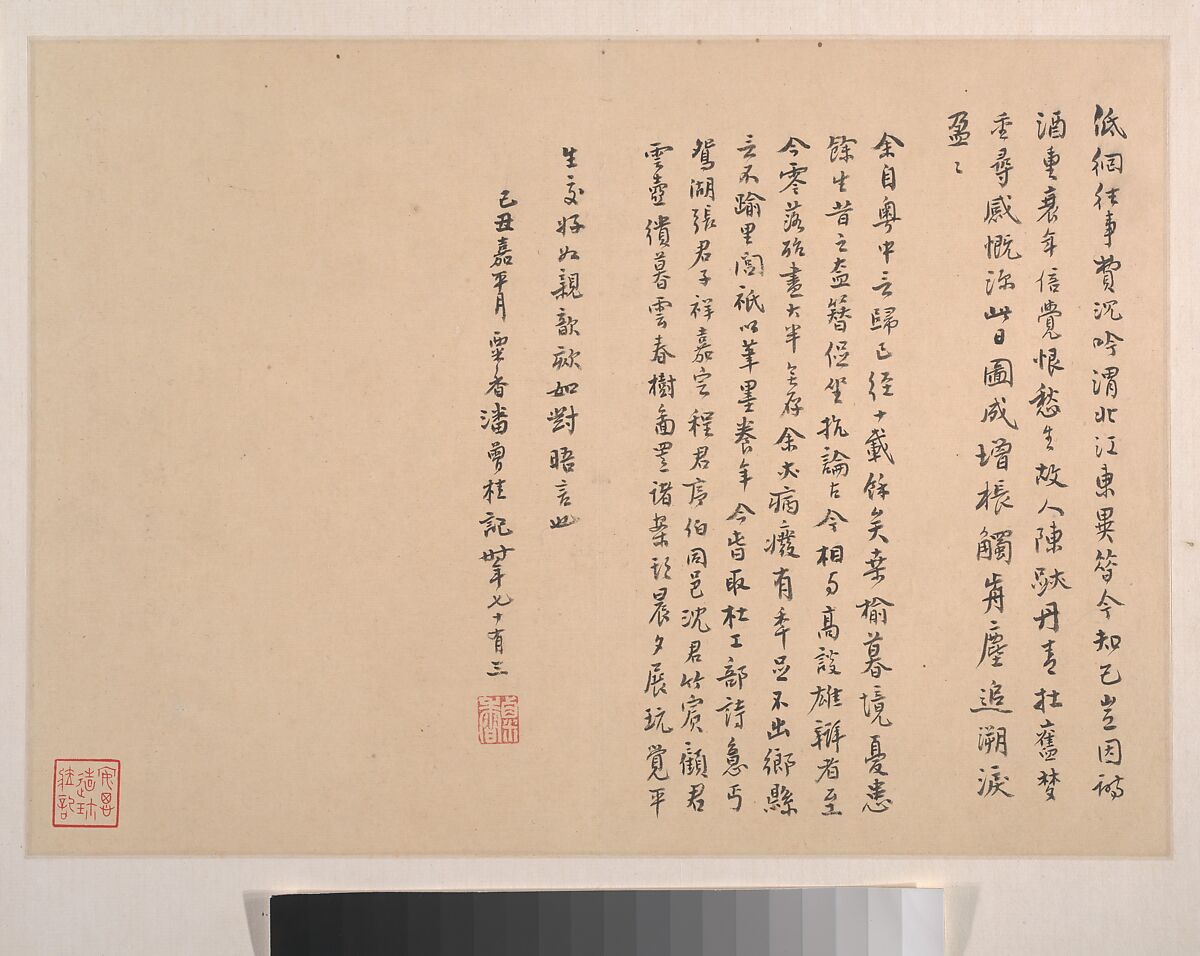 低徊往事費沉吟渭北江東異昔今知己豈因詩
酒重衰年倍覺恨愁生故人陳跡丹青在舊夢
重尋感慨深此日圖成增棖觸前塵追溯淚
盈〻
余自粤中言歸已經十載餘矣桑榆暮境憂患
餘生昔之盍簪促坐抗論古今相與高談雄辯者至
今零落殆盡大半無存余亦病癈有年足不出鄉縣
言不踰里閭祇以筆墨養年今皆取杜工部詩意丐
鴛湖張君子祥嘉定程君序伯同邑沈君竹賓顧君
雲壺繢暮雲春樹圖置諸案頭晨夕展玩覺平
生交好如親歆欬如對晤言也
己丑嘉平月栗香潘曾桂記時年七十有三